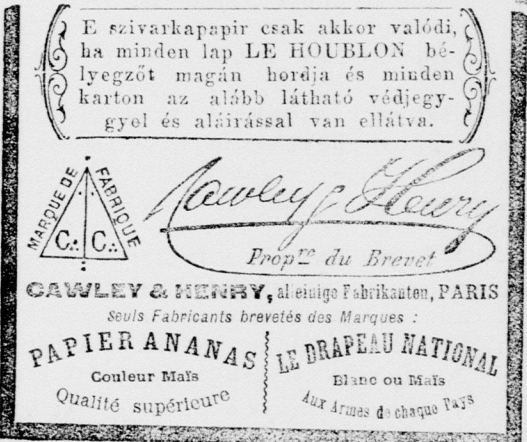 E szivarkapapir csak akkor valódi,
ha minden lap LE HOUBLON bé-
lyegzőt magán hordja és minden
karton az alább látható védjegy-
gyel és aláirással van ellátva.
MARQUE DE FABRIQUE
C. C.
Cawley & Henry
Propre du Brevet
CAWLEY & HENRY, alleinige Fabrikanten, PARIS
Seuls Fabricants brevetés des Marques :
PAPIER ANANAS
Couleur Maïs
Qualité supérieure
LE DRAPEAU NATIONAL
Blanc ou Maïs
Aux Armes de chaque Pays